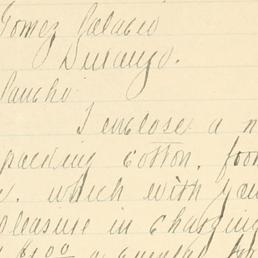 Gomez Palacio
Durango.
Pancho
I enclose a
packing cotton.
which with
pleasure in charging
a quintal